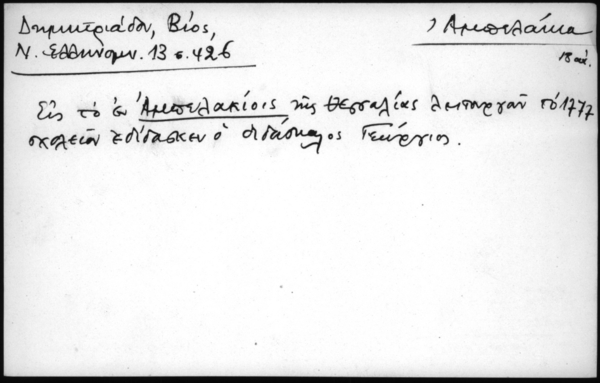 Δημητριάδου, Βίος,
Ν. Ελληνομν. 13 σ. 426
Ἀμπελάκια
18 αἰ.
Εἰς τὸ ἐν Ἀμπελακίοις τῆς Θεσσαλίας λειτουργοῦν τὸ 1777
σχολεῖον ἐδίδασκεν ὁ διδάσκαλος Γεώργιος.